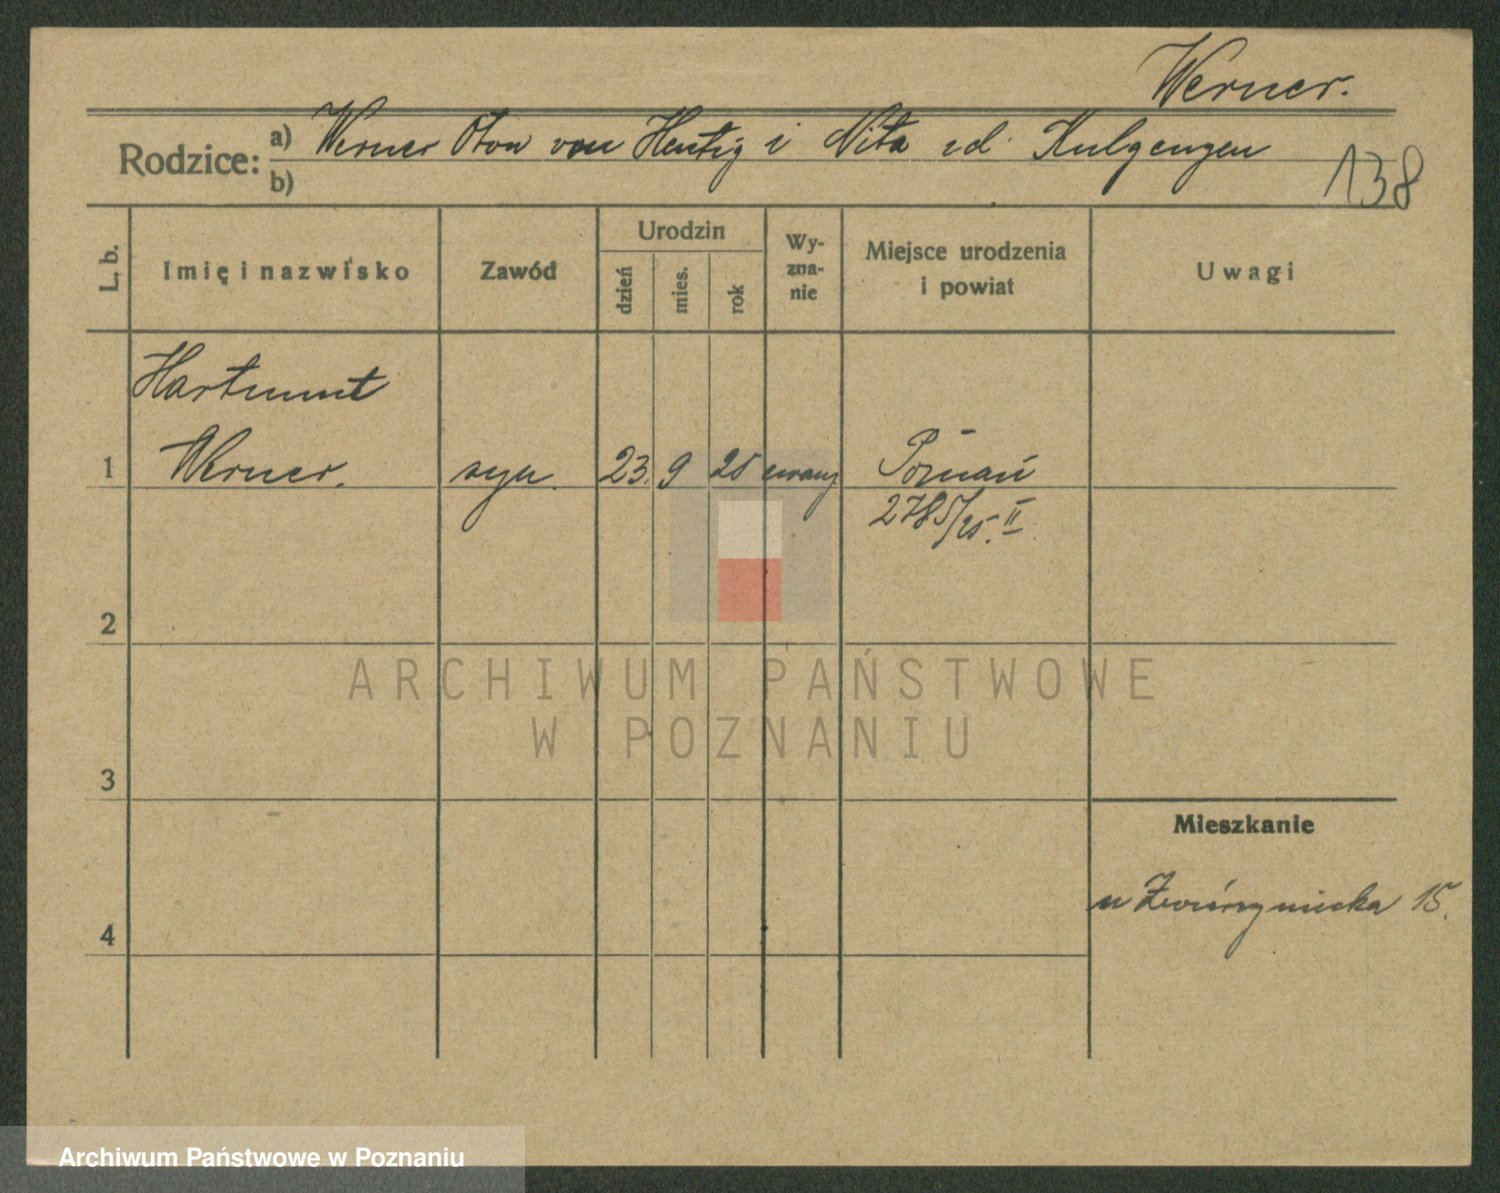 Werner.
Rodzice: a) Werner Oton von Hentig i Nita zd.
b)
138
L. b.
Imię i nazwisko
Zawód
Urodzin
dzień
mies.
rok
Wy-
zna-
nie
Miejsce urodzenia
i powiat
Uwagi
Hartmut
1 Werner. syn. 23. 9 25 ewang. Poznań
2785/25. II.
2
3
4
Mieszkanie
u Zwierzyniecka 15.
ARCHIWUM PAŃSTWOWE
W POZNANIU
Archiwum Państwowe w Poznaniu